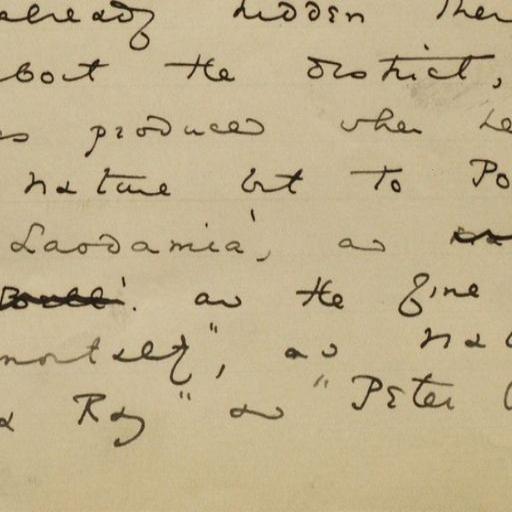 already hidden ther
bout the district,
es produced when he
nature but to Po
'Laodamia', as
as the fine
mortself", as na
Roy" as "Peter